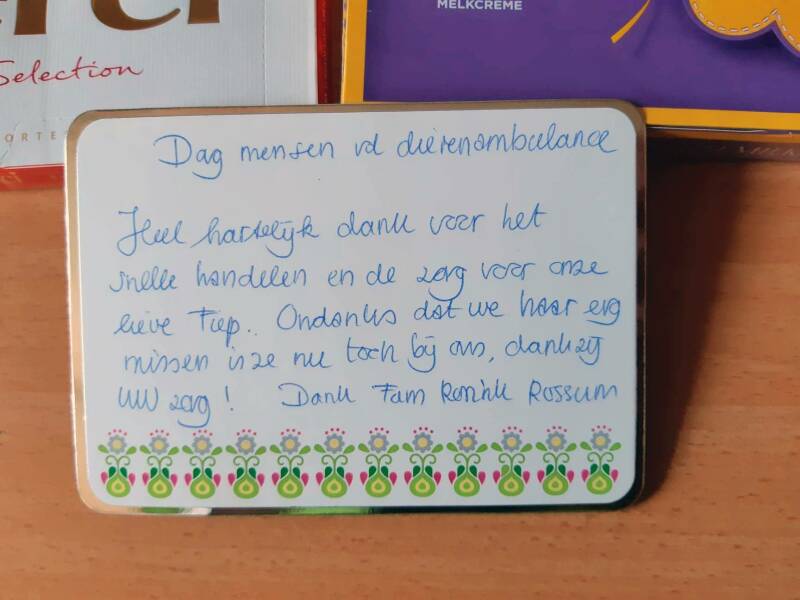 MELKCREME
Selection
Dag mensen vd dierenambulance
Heel hartelijk dank voor het
snelle handelen en de zorg voor onze
lieve Fiep.. Ondanks dat we haar erg
missen is ze nu toch bij ons, dankzij
UW zorg! Dank Fam Rossum